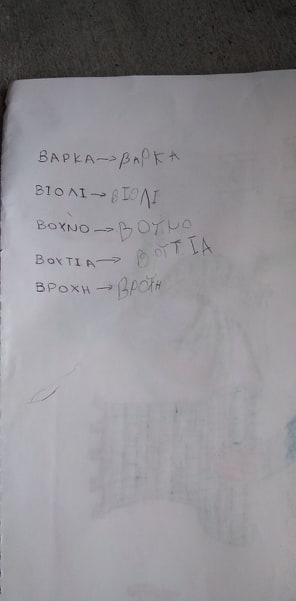 ΒΑΡΚΑ → ΒΑΡΚΑ
ΒΙΟΛΙ → ΒΙΟΛΙ
ΒΟΥΝΟ → ΒΟΥΝΟ
ΒΟΥΤΙΑ → ΒΟΥΤΙΑ
ΒΡΟΧΗ → ΒΡΟΧΗ